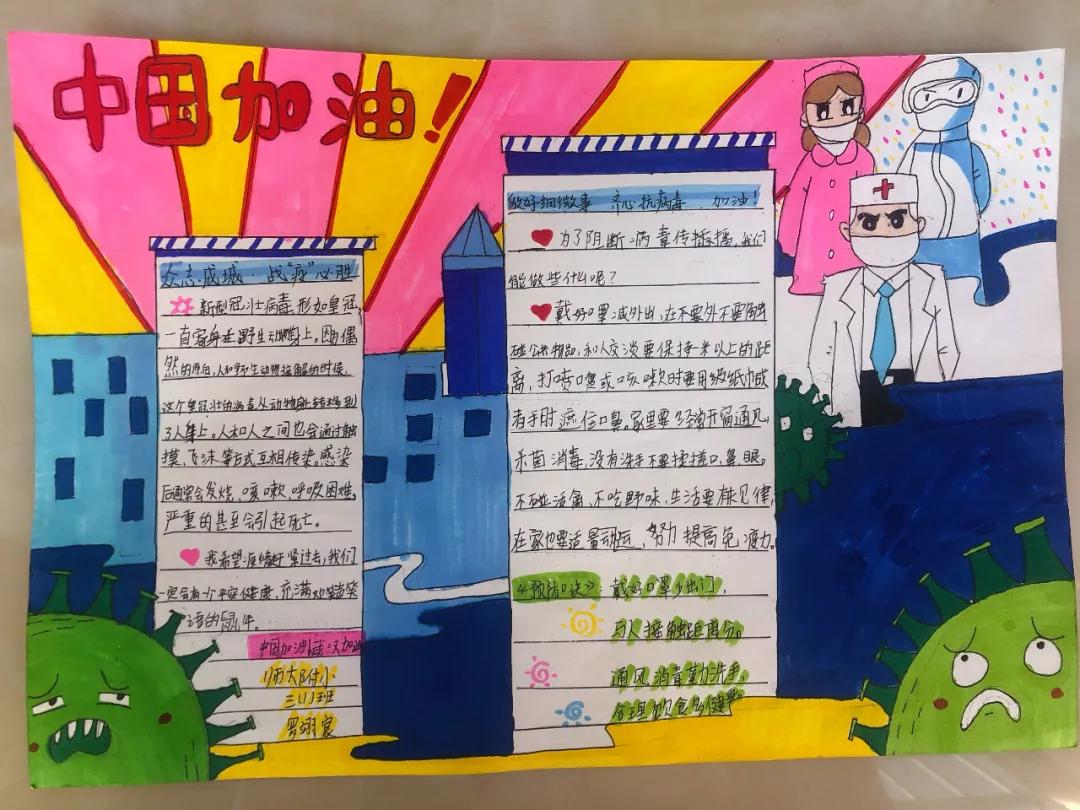 中国加油!
众志成城·战"疫"必胜
新型冠壮病毒,形如皇冠,
一直寄身在野生动物身上。因为偶
然的原因,人和野生动物接触的时候,
这个皇冠壮的病毒从动物身上转移到
了人身上。人和人之间也会通过触
摸、飞沫等方式互相传染。感染
后通常会发烧、咳嗽、呼吸困难。
严重的甚至会引起死亡。
我希望疫情赶紧过去,我们
一定会有一个平安健康、充满欢声笑
语的鼠年。
中国加油!武汉加油
师大附小
三(1)班
罗翊宸
做好细微事 齐心抗病毒 加油!
为了阴断病毒传播播,我们
能做些什么呢?
戴好口罩减外出,在不要外不要触
碰公共物品,和人交谈要保持一米以上的距
离,打喷嚏或咳嗽时要用纸巾或
者手肘 住口鼻。家里要经常开窗通风,
杀菌消毒,没有洗手不要揉搓口、鼻、眼。
不碰活禽,不吃野味,生活要有规律,
在家也要适量动运,努力提高免疫力。
《预防口诀》:戴好口罩少出门,
与人接触距离分。
通风消毒勤洗手,
合理饮食幺健